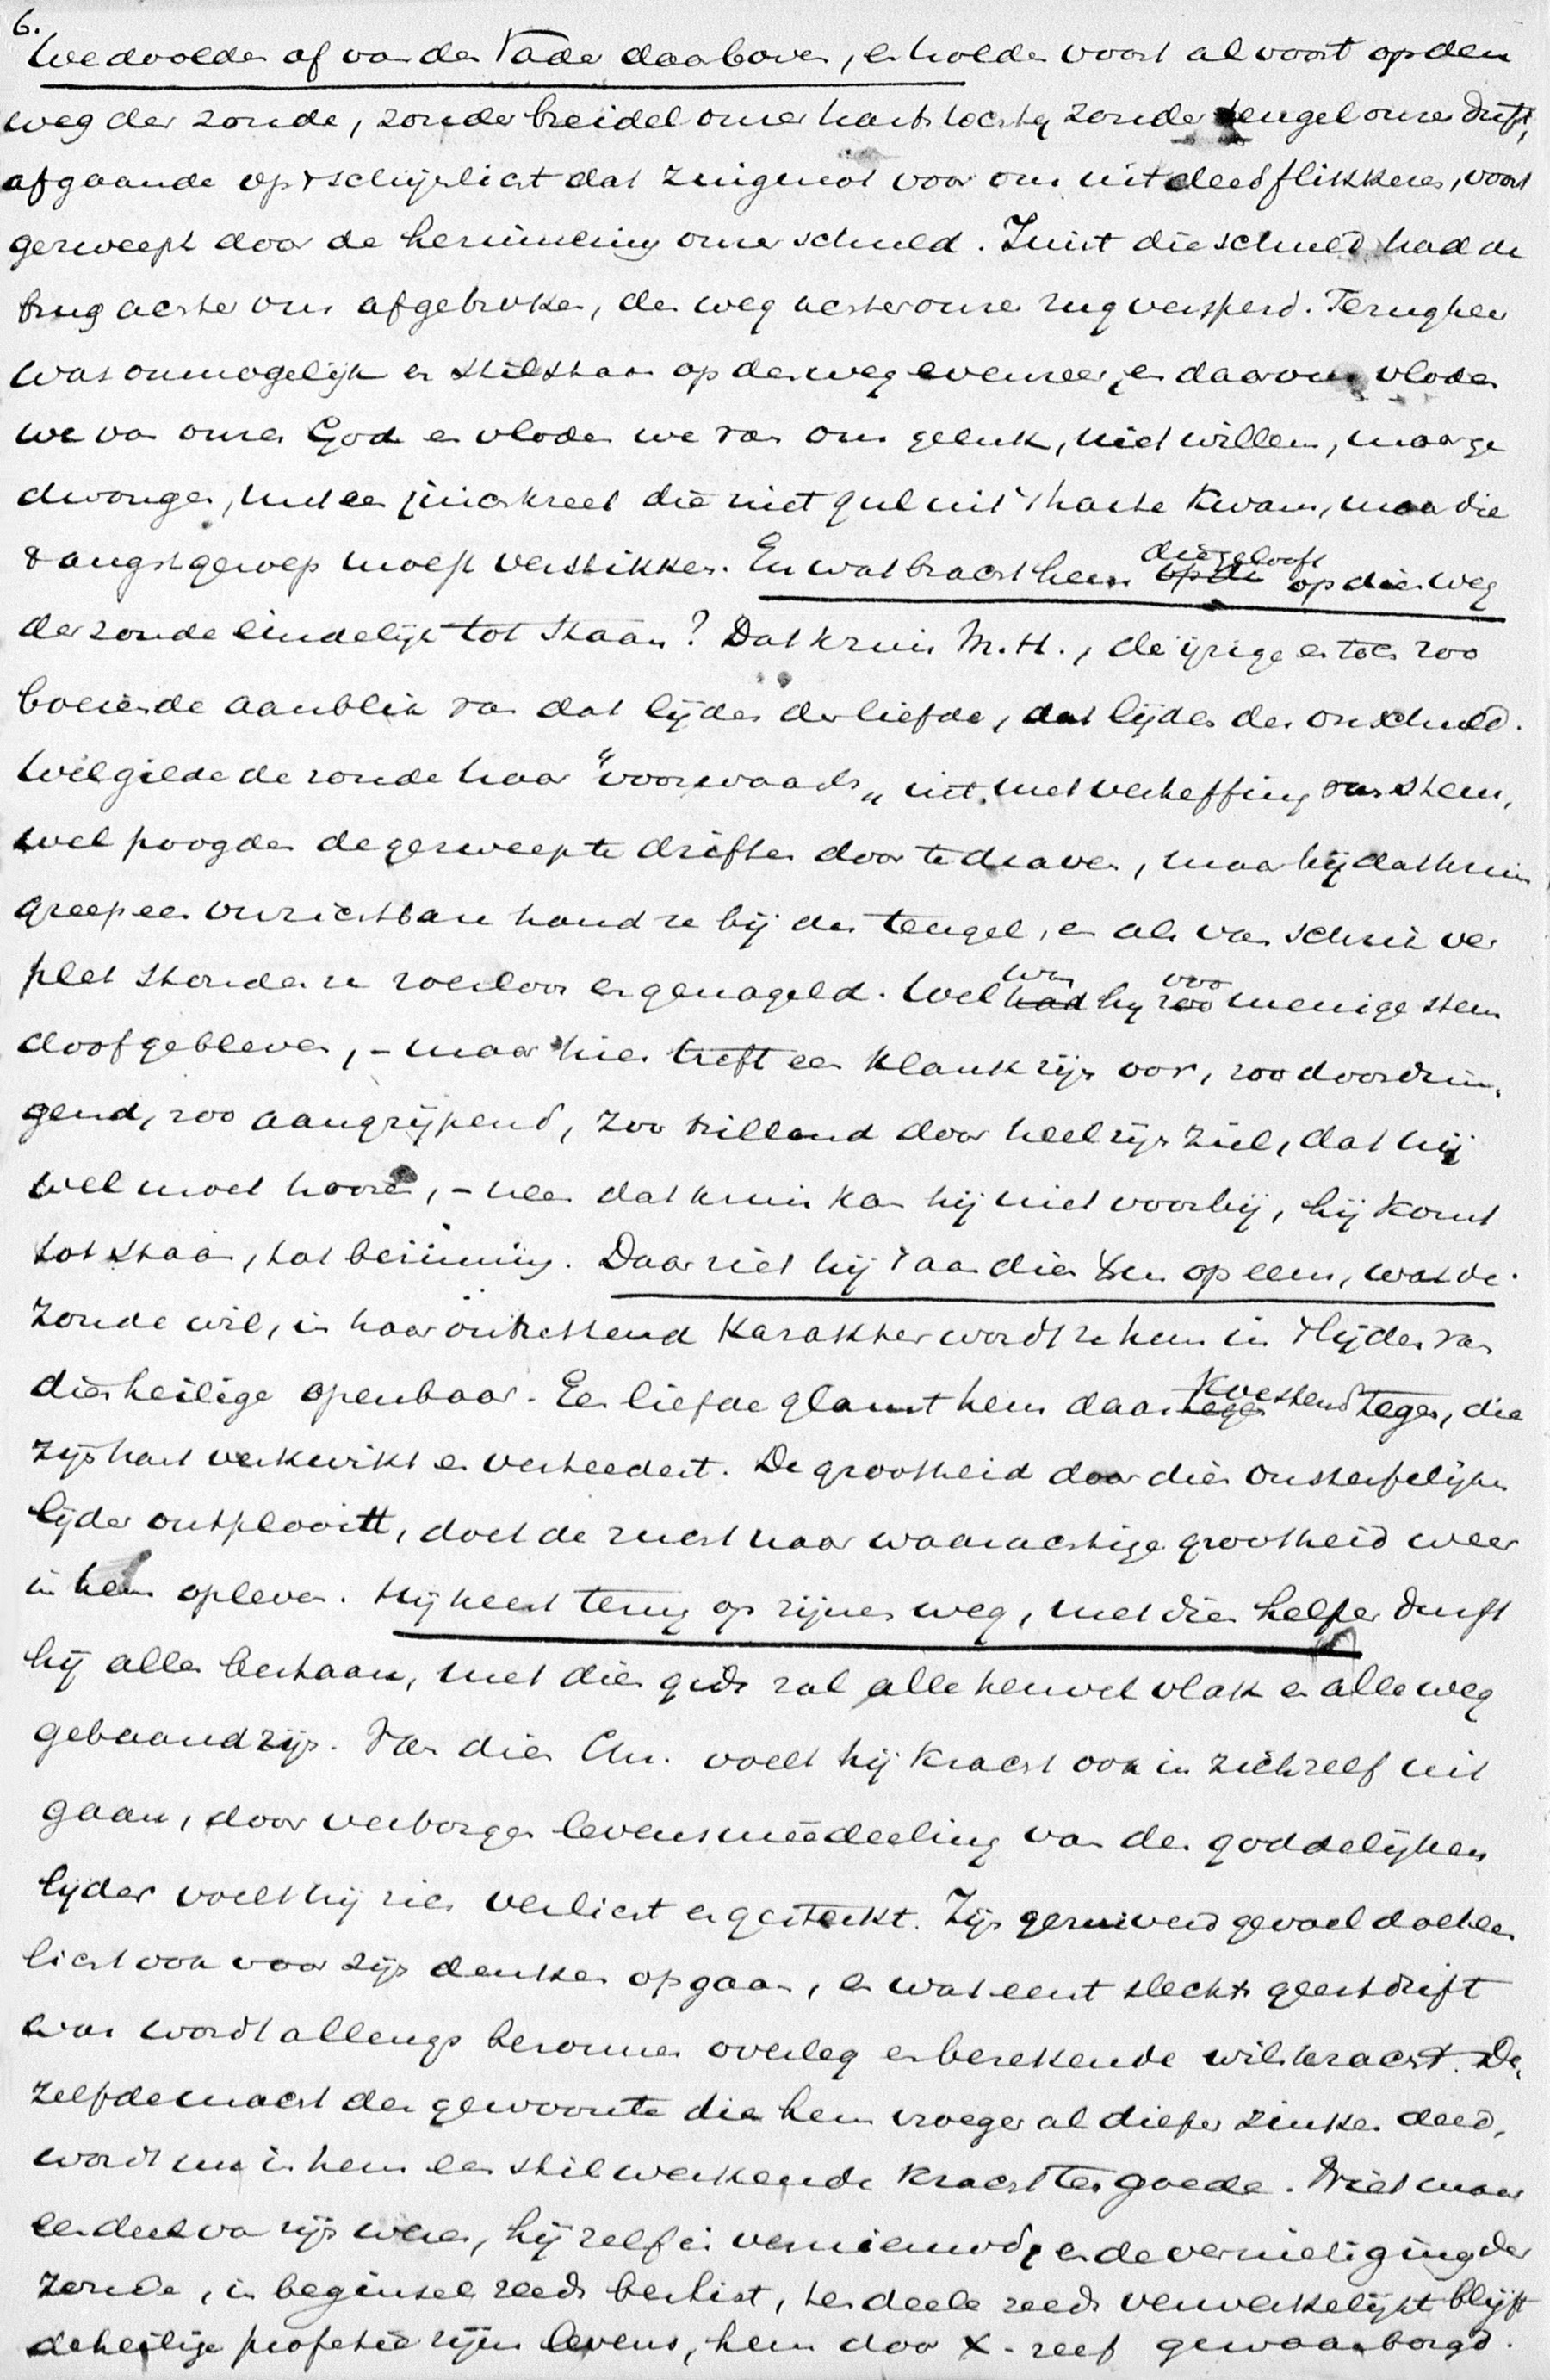 6.
We doolden af van den Vader daarboven, en holden voort al voort op den
weg der zonde, zonder breidel onzer hartstochten zonder teugel onzer drift,
afgaande op 't schijnlicht dat zingenot voor ons uit deed flikkeren, voort
gezweept door de herinnering onzer schuld. Juist die schuld had de
brug achter ons afgebroken, den weg achter onze rug versperd. Terugkeer
was onmogelijk en stilstaan op den weg evenzeer, en daarom vloden
we van onzen God en vloden we van ons geluk, niet willens, maar ge
dwongen, met een juichkreet die niet gul uit 't harte kwam, maar die
't angstgeroep moest verstikken. En wat bracht hem die gelooft op die weg
der zonde eindelijk tot staan? Dat kruis M.H., de ijzige en toch zoo
boeiende aanblik van dat lijden der liefde, dat lijden der onschuld.
Wel gilde de zonde haar "voorwaarts" uit met verheffing van stem,
wel poogden de gezweepte driften door te draven, maar bij dat kruis
greep een onzichtbare hand ze bij den teugel, en als van schrik ver
plet stonden ze roerloos en genageld. Wel was hij voor menige stem
doof gebleven, - maar hier treft een klank zijn oor, zoo doordrin-
gend, zoo aangrijpend, zoo trillend door heel zijn ziel, dat hij
wel moet hooren, - neen dat kruis kan hij niet voorbij, hij komt
tot staan, tot bezinning. Daar ziet hij 't aan dien Een op eens, wat de
zonde wil, in haar ontzettend karakter wordt ze hem in 't lijden van
dien heilige openbaar. Een liefde glanst hem daar koesterend tegen, die
zijn hart verkwikt en verteedert. De grootheid door dien onsterfelijken
lijder ontplooitt, doet de zucht naar waarachtige grootheid weer
in hem opleven. Hij keert terug op zijnen weg, met dien helper durft
hij alles bestaan, met dien gids zal alle heuvel vlak en alle weg
gebaand zijn. Van dien Chr. voelt hij kracht ook in zichzelf uit
gaan, door verborgen levensmeedeeling van den goddelijken
lijder voelt hij zich verlicht en gesterkt. Zijn gezuiverd gevoel doet een
licht ook voor zijn denken opgaan, en wat eerst slechts geestdrift
was wordt allengs bezonnen overleg en berekende wilskracht. De-
zelfde macht der gewoonte die hem vroeger al dieper zinken deed,
wordt nu in hem een stil werkende kracht ten goede. Niet maar
een deel van zijn wezen, hij zelf is vernieuwd, en de vernietiging der
zonde, in beginsel reeds beslist, ten deele reeds verwerkelijkt blijft
de heilige profetie zijns levens, hem door X. zelf gewaarborgd.